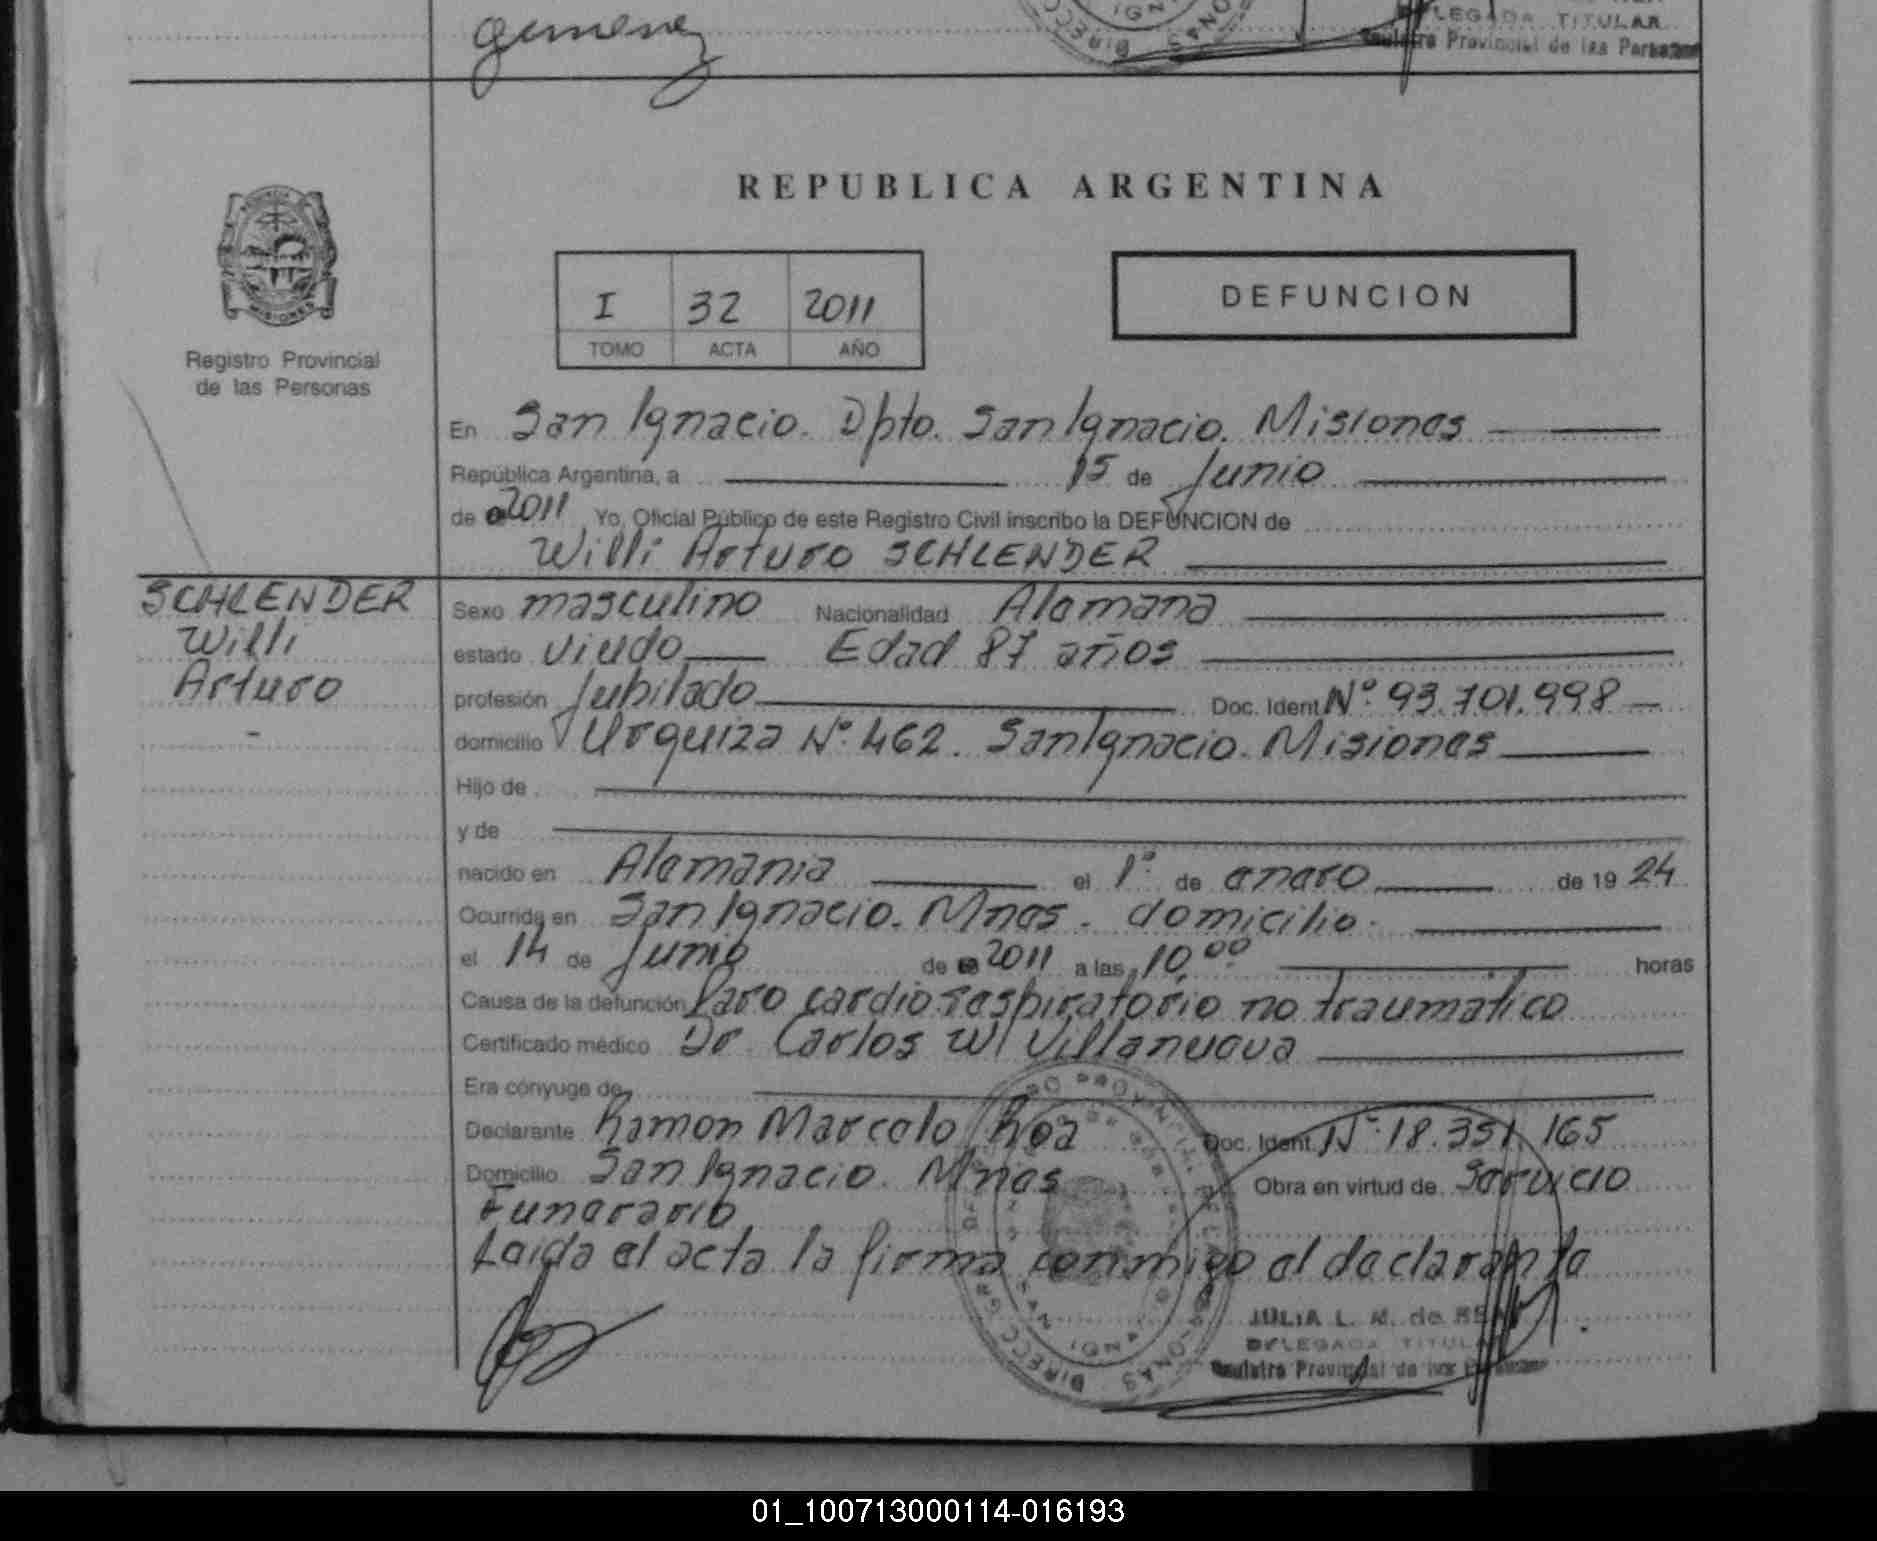 gimenez
DELEGADA TITULAR
Registro Provincial de las Personas
REPUBLICA ARGENTINA
I 32 2011
TOMO ACTA AÑO
DEFUNCION
Registro Provincial
de las Personas
En San Ignacio. Dpto. San Ignacio. Misiones
República Argentina, a 15 de Junio
de 2011 Yo, Oficial Público de este Registro Civil inscribo la DEFUNCION de
Willi Arturo SCHLENDER
SCHLENDER
Willi
Arturo
Sexo masculino Nacionalidad Alemana
estado viudo Edad 87 años
profesión Jubilado Doc. Ident Nº 93.701.998
domicilio Urquiza Nº 462. San Ignacio. Misiones
Hijo de
y de
nacido en Alemania el 1º de enero de 1924
Ocurrida en San Ignacio. Mnes. domicilio.
el 14 de Junio de 2011 a las 10,00 horas
Causa de la defunción Paro cardio respiratorio no traumatico
Certificado médico Dr. Carlos W Villanueva
Era cónyuge de
Declarante Ramon Marcelo Roa Doc. Ident. Nº 18.351.165
Domicilio San Ignacio. Mnes Obra en virtud de Servicio
Funerario
Leida el acta la firma conmigo el declarante
JULIA L. M. de
DELEGADA TITULAR
Registro Provincial de las Personas
01_100713000114-016193